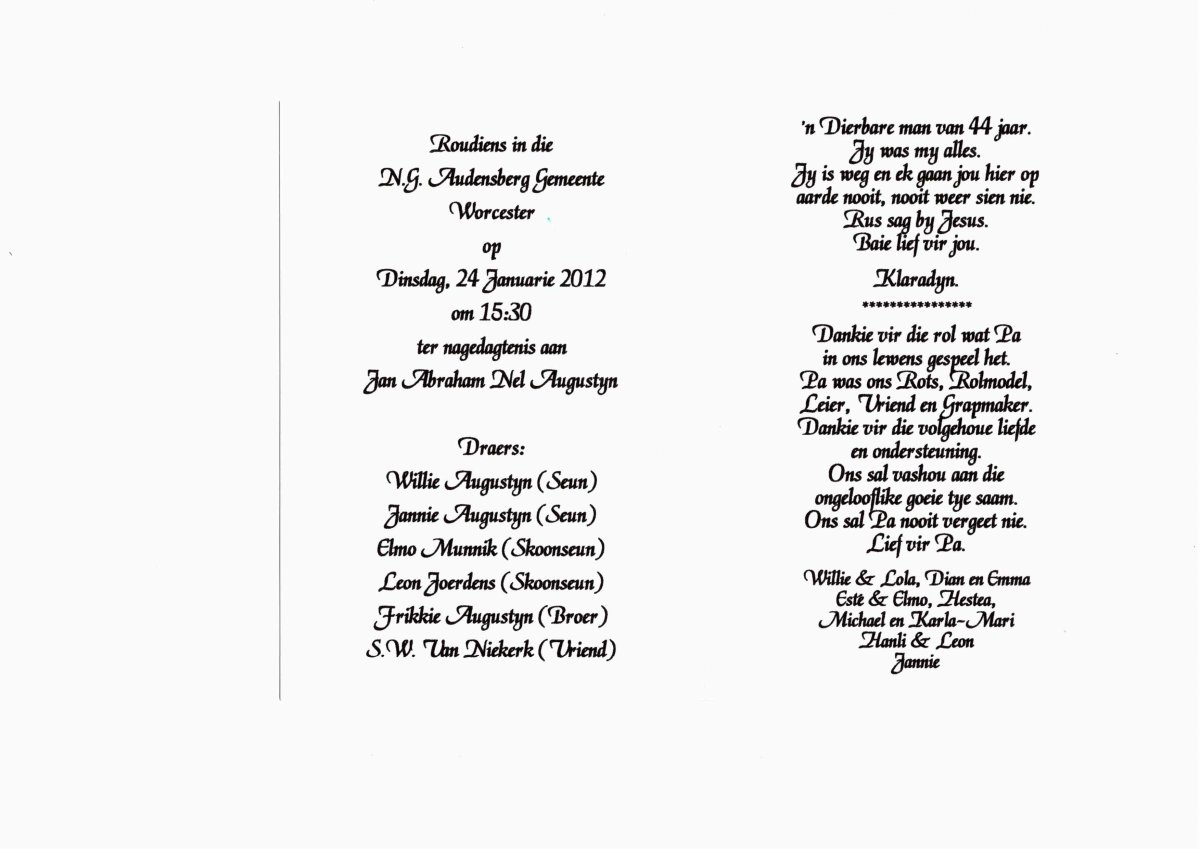 Roudiens in die
N.G. Audensberg Gemeente
Worcester
op
Dinsdag, 24 Januarie 2012
om 15:30
ter nagedagtenis aan
Jan Abraham Nel Augustyn
Draers:
Willie Augustyn (Seun)
Jannie Augustyn (Seun)
Elmo Munnik (Skoonseun)
Leon Joerdens (Skoonseun)
Frikkie Augustyn (Broer)
S.W. Van Niekerk (Vriend)
'n Dierbare man van 44 jaar.
Jy was my alles.
Jy is weg en ek gaan jou hier op
aarde nooit, nooit weer sien nie.
Rus sag by Jesus.
Baie lief vir jou.
Klaradyn.
****************
Dankie vir die rol wat Pa
in ons lewens gespeel het.
Pa was ons Rots, Rolmodel,
Leier, Vriend en Grapmaker.
Dankie vir die volgehoue liefde
en ondersteuning.
Ons sal vashou aan die
ongelooflike goeie tye saam.
Ons sal Pa nooit vergeet nie.
Lief vir Pa.
Willie & Lola, Dian en Emma
Esté & Elmo, Hestea,
Michael en Karla-Mari
Hanli & Leon
Jannie